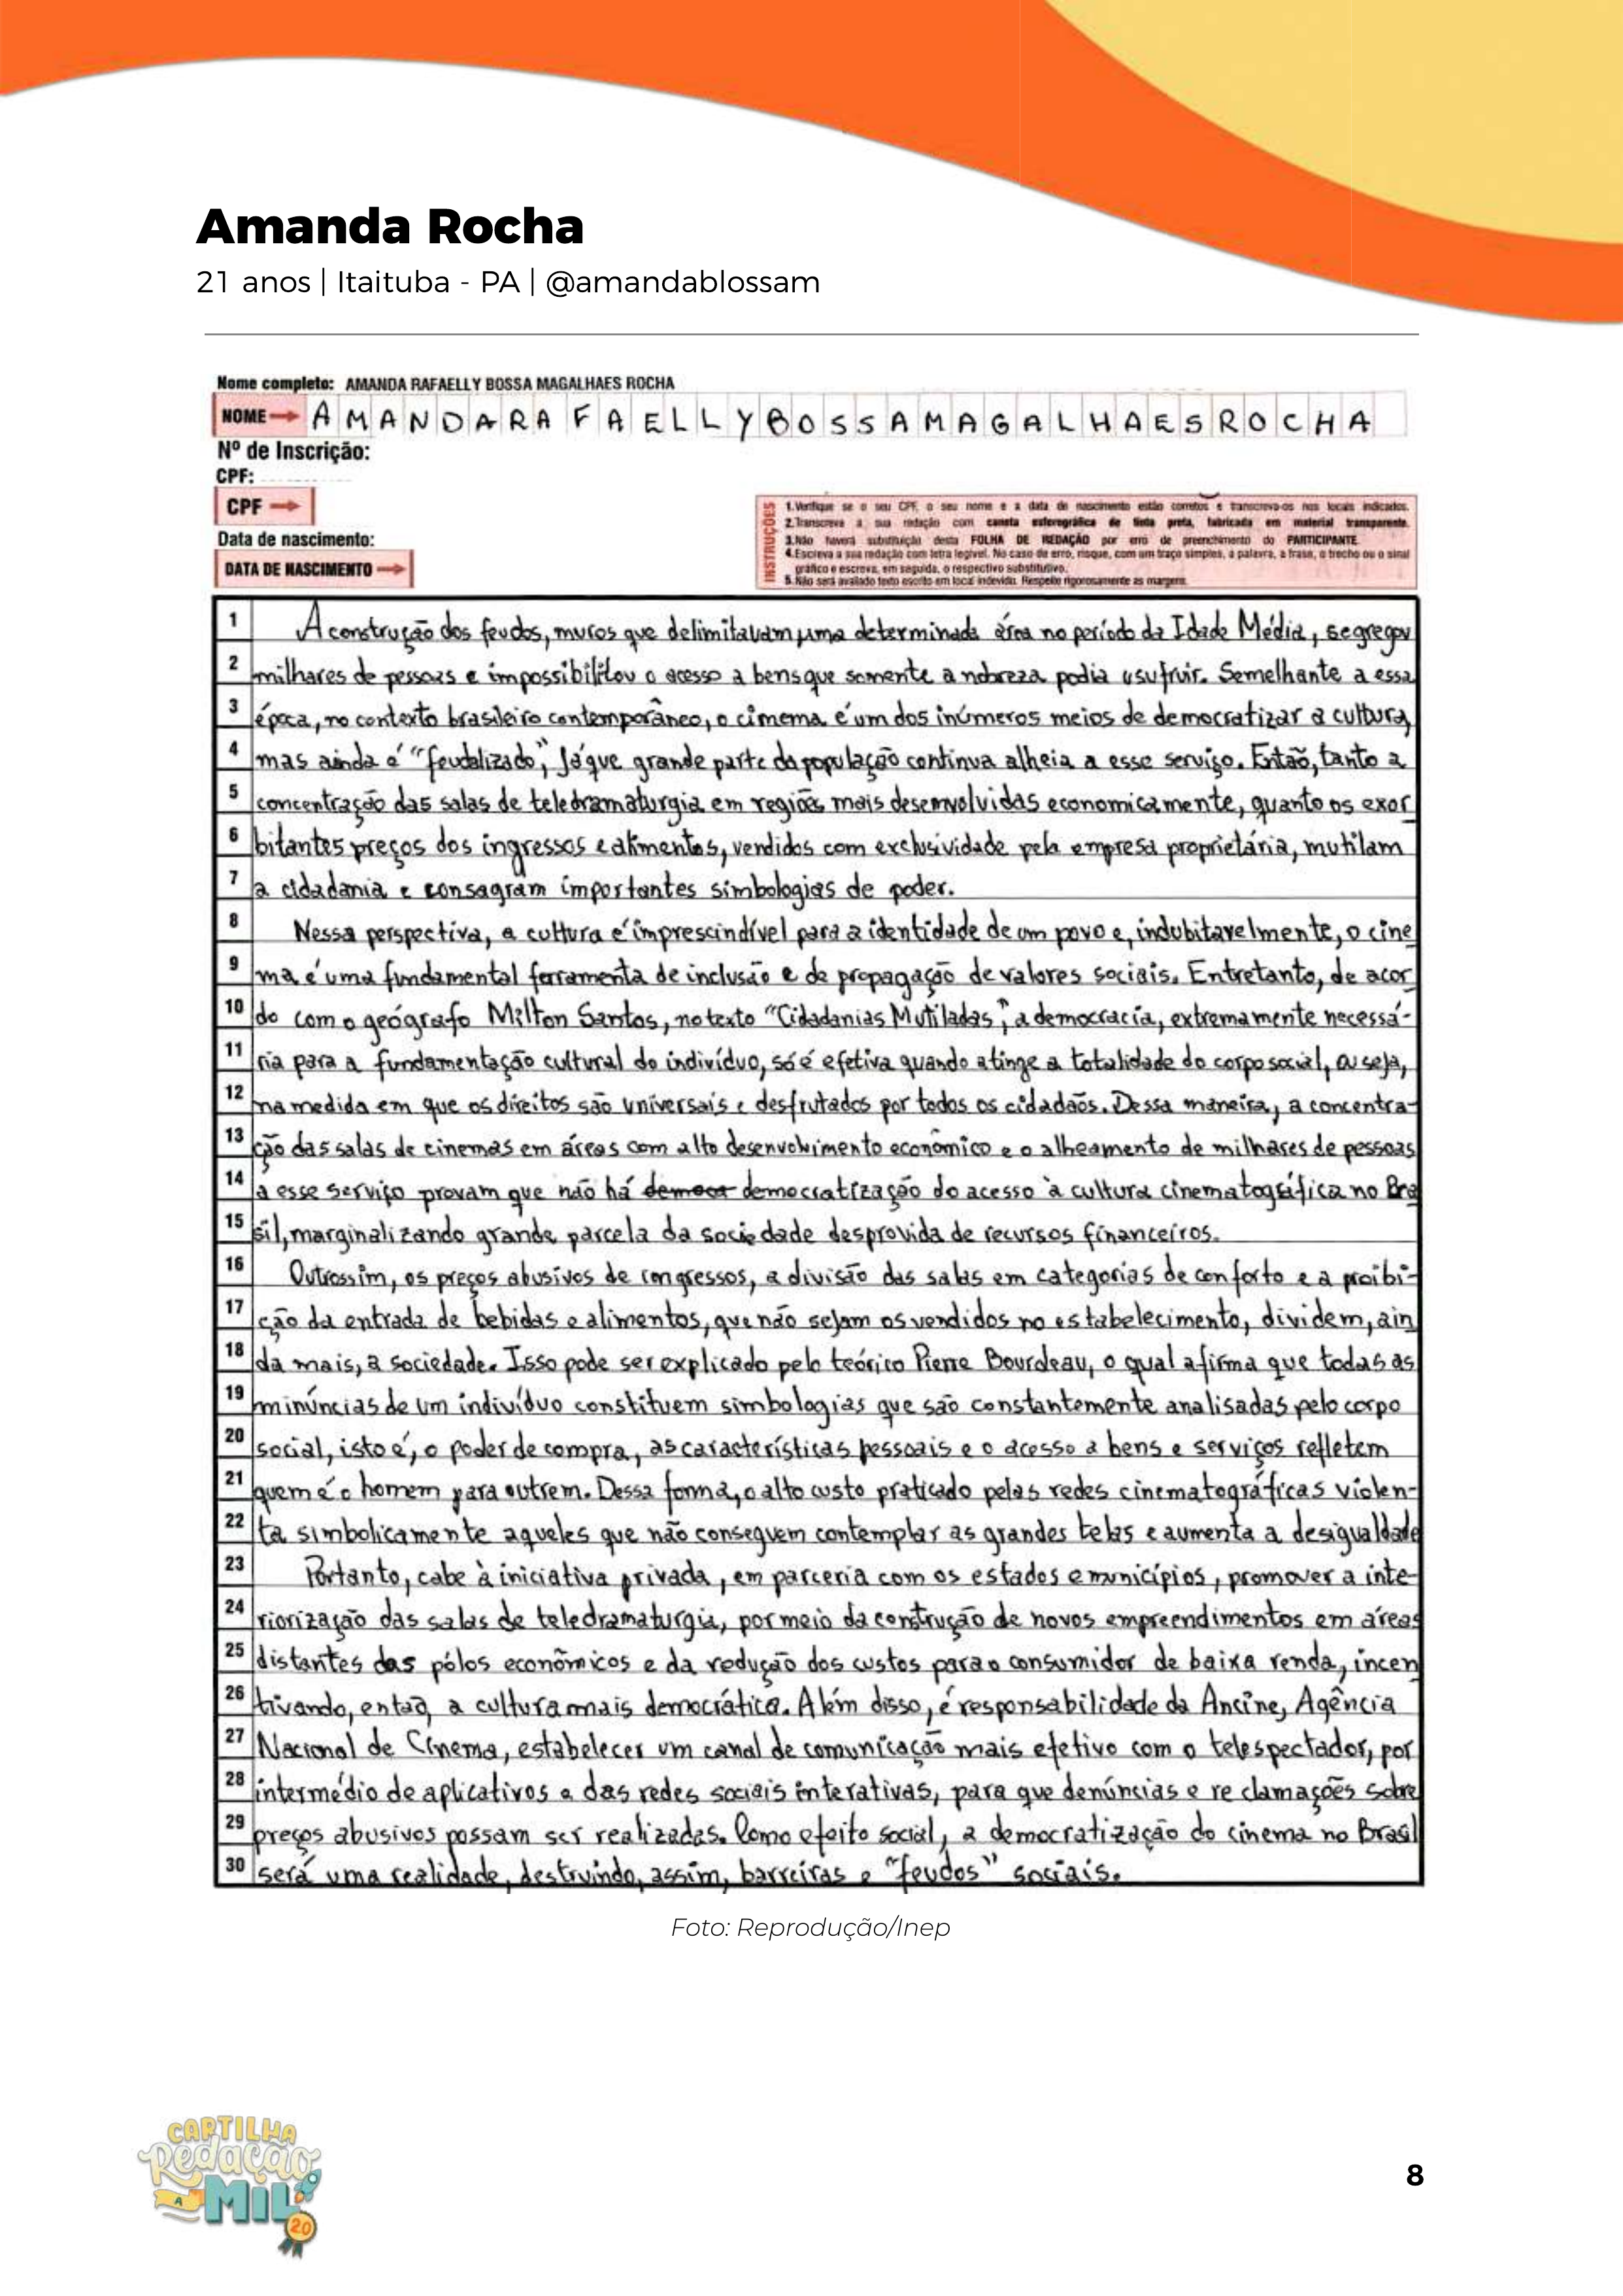 Amanda Rocha
21 anos | Itaituba - PA | @amandablossam
Nome completo: AMANDA RAFAELLY BOSSA MAGALHAES ROCHA
NOME AMANDARAFAELLYBOSSAMAGALHAESROCHA
Nº de Inscrição:
CPF:
CPF
Data de nascimento:
DATA DE NASCIMENTO
INSTRUÇÕES
1.Verifique se o seu CPF, o seu nome e a data de nascimento estão corretos e transcreva-os nos locais indicados.
2.Transcreva a sua redação com caneta esferográfica de tinta preta, fabricada em material transparente.
3.Não haverá substituição desta FOLHA DE REDAÇÃO por erro de preenchimento do PARTICIPANTE.
4.Escreva a sua redação com letra legível. No caso de erro, risque, com um traço simples, a palavra, a frase, o trecho ou o sinal
gráfico e escreva, em seguida, o respectivo substitutivo.
5.Não será avaliado texto escrito em local indevido. Respeite rigorosamente as margens.
1 A construção dos feudos, muros que delimitavam uma determinada área no período da Idade Média, segregou
2 milhares de pessoas e impossibilitou o acesso a bens que somente a nobreza podia usufruir. Semelhante a essa
3 época, no contexto brasileiro contemporâneo, o cinema é um dos inúmeros meios de democratizar a cultura,
4 mas ainda é "feudalizado", já que grande parte da população continua alheia a esse serviço. Então, tanto a
5 concentração das salas de teledramaturgia em regiões mais desenvolvidas economicamente, quanto os exor
6 bitantes preços dos ingressos e alimentos, vendidos com exclusividade pela empresa proprietária, mutilam
7 a cidadania e consagram importantes simbologias de poder.
8 Nessa perspectiva, a cultura é imprescindível para a identidade de um povo e, indubitavelmente, o cine
9 ma é uma fundamental ferramenta de inclusão e de propagação de valores sociais. Entretanto, de acor
10 do com o geógrafo Milton Santos, no texto "Cidadanias Mutiladas", a democracia, extremamente necessá-
11 ria para a fundamentação cultural do indivíduo, só é efetiva quando atinge a totalidade do corpo social, ou seja,
12 na medida em que os direitos são universais e desfrutados por todos os cidadãos. Dessa maneira, a concentra-
13 ção das salas de cinemas em áreas com alto desenvolvimento econômico e o alheamento de milhares de pessoas
14 a esse serviço provam que não há democr democratização do acesso à cultura cinematográfica no Bra
15 sil, marginalizando grande parcela da sociedade desprovida de recursos financeiros.
16 Outrossim, os preços abusivos de ingressos, a divisão das salas em categorias de conforto e a proibi-
17 ção da entrada de bebidas e alimentos, que não sejam os vendidos no estabelecimento, dividem, ain
18 da mais, a sociedade. Isso pode ser explicado pelo teórico Pierre Bourdeau, o qual afirma que todas as
19 minúncias de um indivíduo constituem simbologias que são constantemente analisadas pelo corpo
20 social, isto é, o poder de compra, as características pessoais e o acesso a bens e serviços refletem
21 quem é o homem para outrem. Dessa forma, o alto custo praticado pelas redes cinematográficas violen-
22 ta simbolicamente aqueles que não conseguem contemplar as grandes telas e aumenta a desigualdade
23 Portanto, cabe à iniciativa privada, em parceria com os estados e municípios, promover a inte-
24 riorização das salas de teledramaturgia, por meio da construção de novos empreendimentos em áreas
25 distantes dos pólos econômicos e da redução dos custos para o consumidor de baixa renda, incen
26 tivando, então, a cultura mais democrática. Além disso, é responsabilidade da Ancine, Agência
27 Nacional de Cinema, estabelecer um canal de comunicação mais efetivo com o telespectador, por
28 intermédio de aplicativos e das redes sociais interativas, para que denúncias e reclamações sobre
29 preços abusivos possam ser realizadas. Como efeito social, a democratização do cinema no Brasil
30 será uma realidade, destruindo, assim, barreiras e "feudos" sociais.
Foto: Reprodução/Inep
CARTILHA
Redação
A
MIL
2.0
8